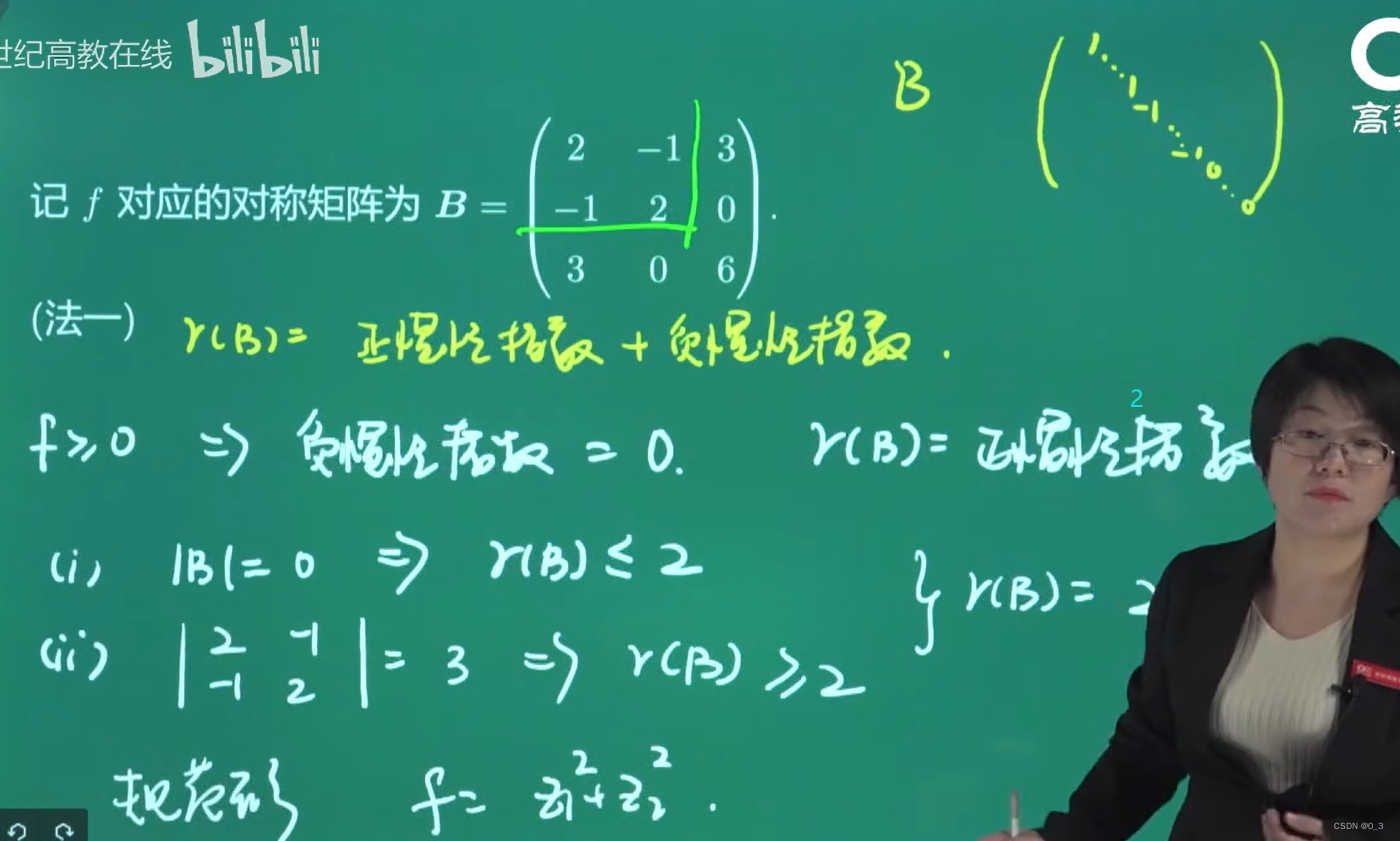 世纪高教在线 bilibili
高教
B
1
⋱
1
-1
⋱
-1
0
⋱
0
记 f 对应的对称矩阵为 B = ( 2 -1 3
-1 2 0
3 0 6 ).
(法一) r(B) = 正惯性指数 + 负惯性指数.
f ≥ 0 ⇒ 负惯性指数 = 0. r(B) = 正惯性指数
2
(i) |B| = 0 ⇒ r(B) ≤ 2
} r(B) = 2
(ii) | 2 -1
-1 2 | = 3 ⇒ r(B) ≥ 2
规范形 f = z₁² + z₂².
CSDN @0_3